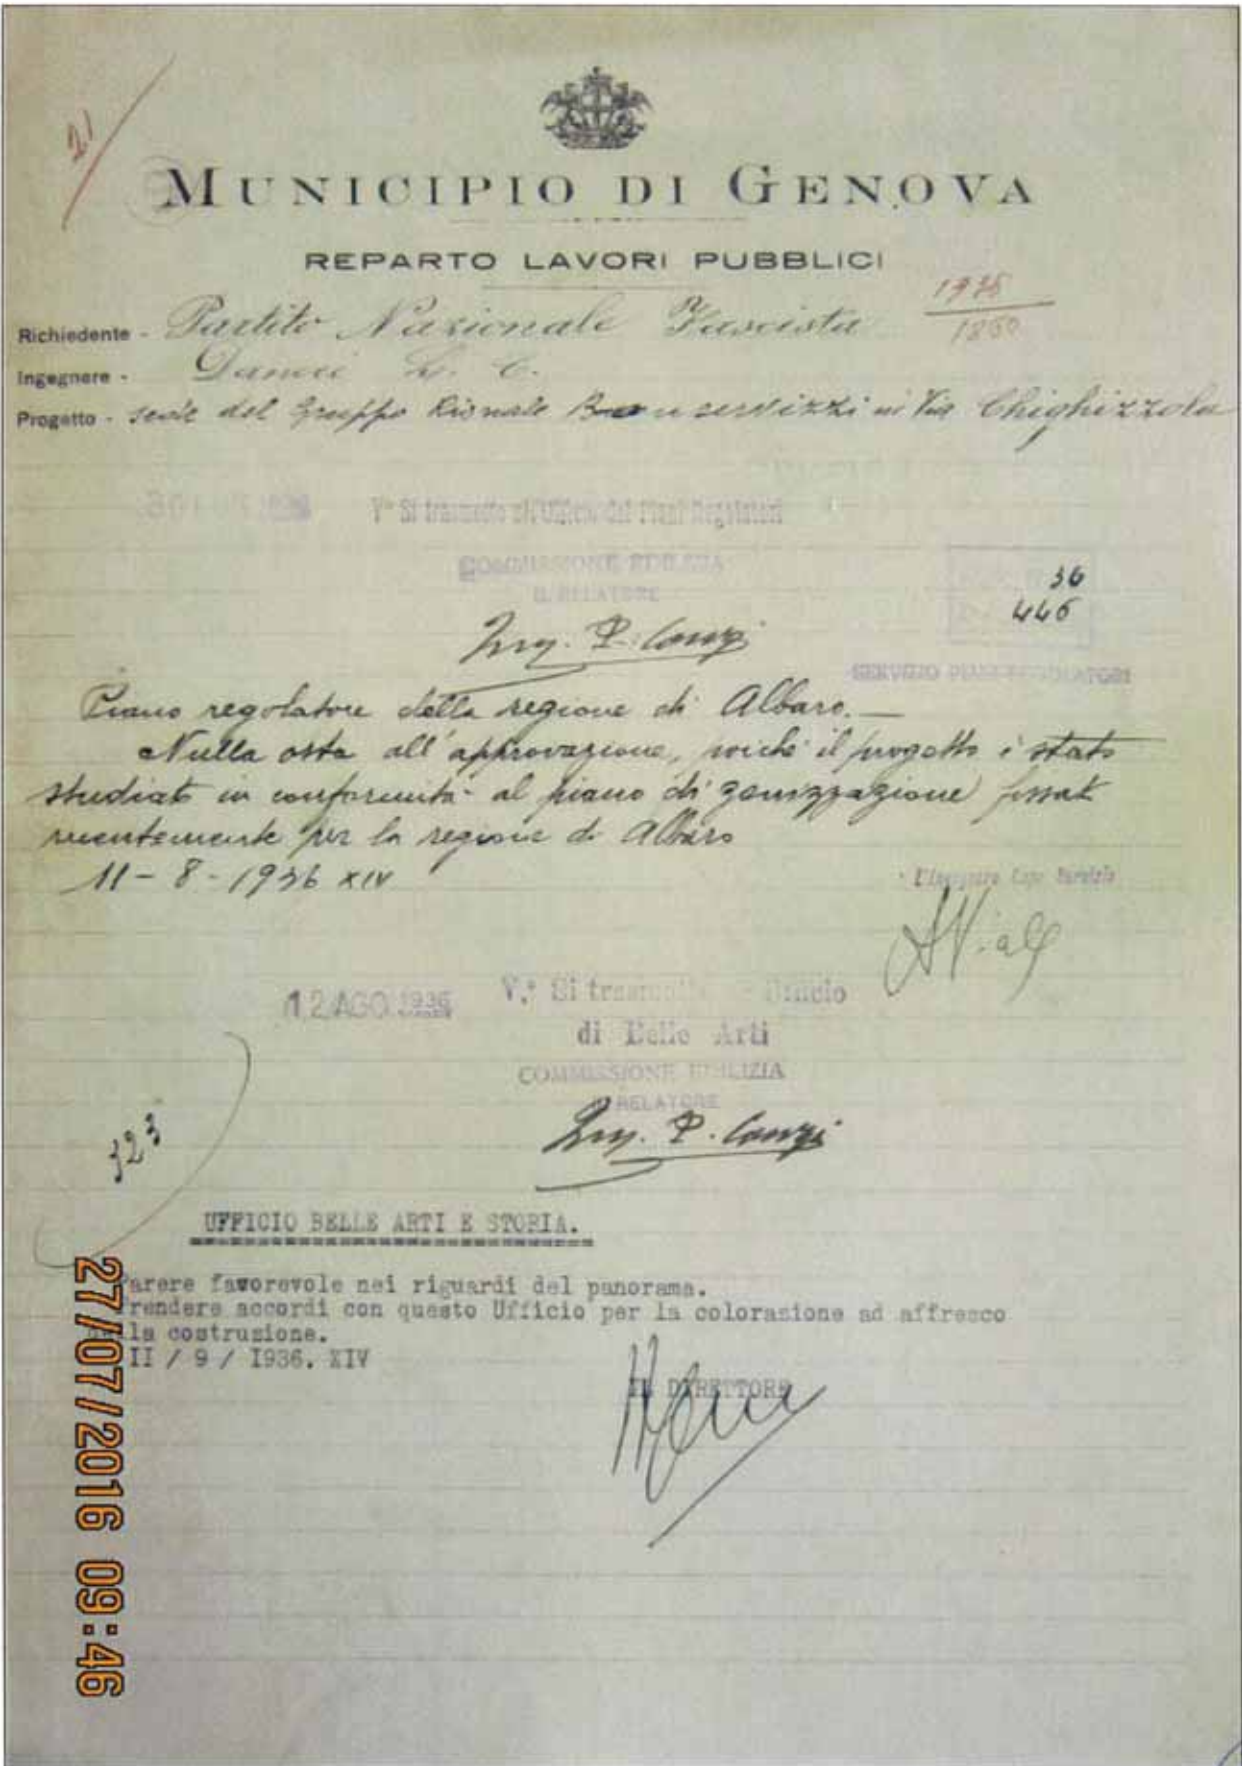 21
MUNICIPIO DI GENOVA
REPARTO LAVORI PUBBLICI
1850
Richiedente - Partito Nazionale Fascista
Ingegnere -
Progetto - sede del Gruppo Rionale in Via Chighizzola
V° Si trasmette all'Ufficio dei Piani Regolatori
COMMISSIONE EDILIZIA
IL RELATORE
36
446
Ing. P. Canzi
SERVIZIO PIANI REGOLATORI
Piano regolatore della regione di Albaro.—
Nulla osta all'approvazione, poichè il progetto è stato
studiato in conformità al piano di zonizzazione fissato
recentemente per la regione di Albaro
11-8-1936 XIV
L'Ingegnere Capo Servizio
12 AGO. 1936
V.° Si trasmette Ufficio
di Belle Arti
COMMISSIONE EDILIZIA
RELATORE
Ing. P. Canzi
123
UFFICIO BELLE ARTI E STORIA.
Parere favorevole nei riguardi del panorama.
Prendere accordi con questo Ufficio per la colorazione ad affresco
della costruzione.
II / 9 / I936. XIV
IL DIRETTORE
27/07/2016 09:46